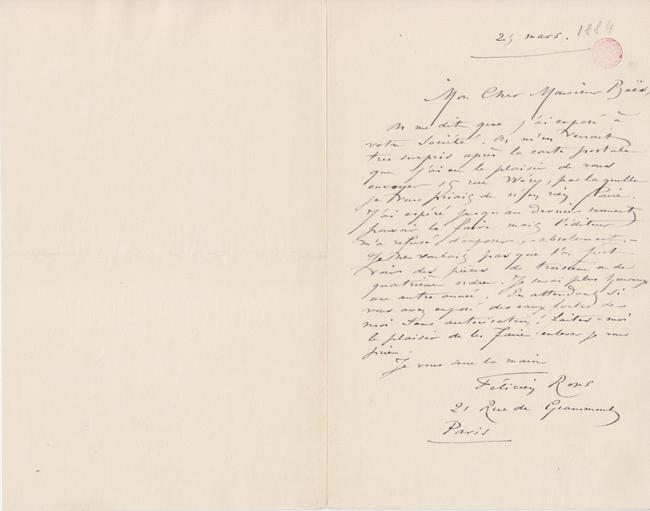 25 mars. 1884
Mon Cher Monsieur Baës,
On me dit que j'ai exposé à
votre Société! On m'en verrait
très surpris après la carte postale
que j'ai eu le plaisir de vous
envoyer 15 rue Wéry, par laquelle
je vous priais de n'en rien faire.
J'ai espéré jusqu'au dernier moment
pouvoir le faire mais l'éditeur
m'a refusé d'exposer, - absolument. -
Je ne voulais pas que l'on put
voir des pièces de troisième ou de
quatrième ordre. Je serai plus heureux
une autre année. En attendant si
vous avez exposé des eaux fortes de
moi sans autorisation! faites-moi
le plaisir de les faire enlever je vous
prie.
Je vous serre la main
Félicien Rops
21 Rue de Grammont
Paris